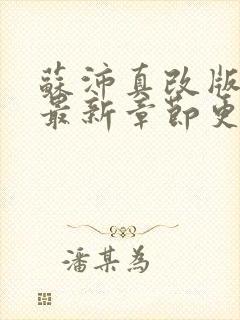 蘇沛真改版
最新章節更
潘某為